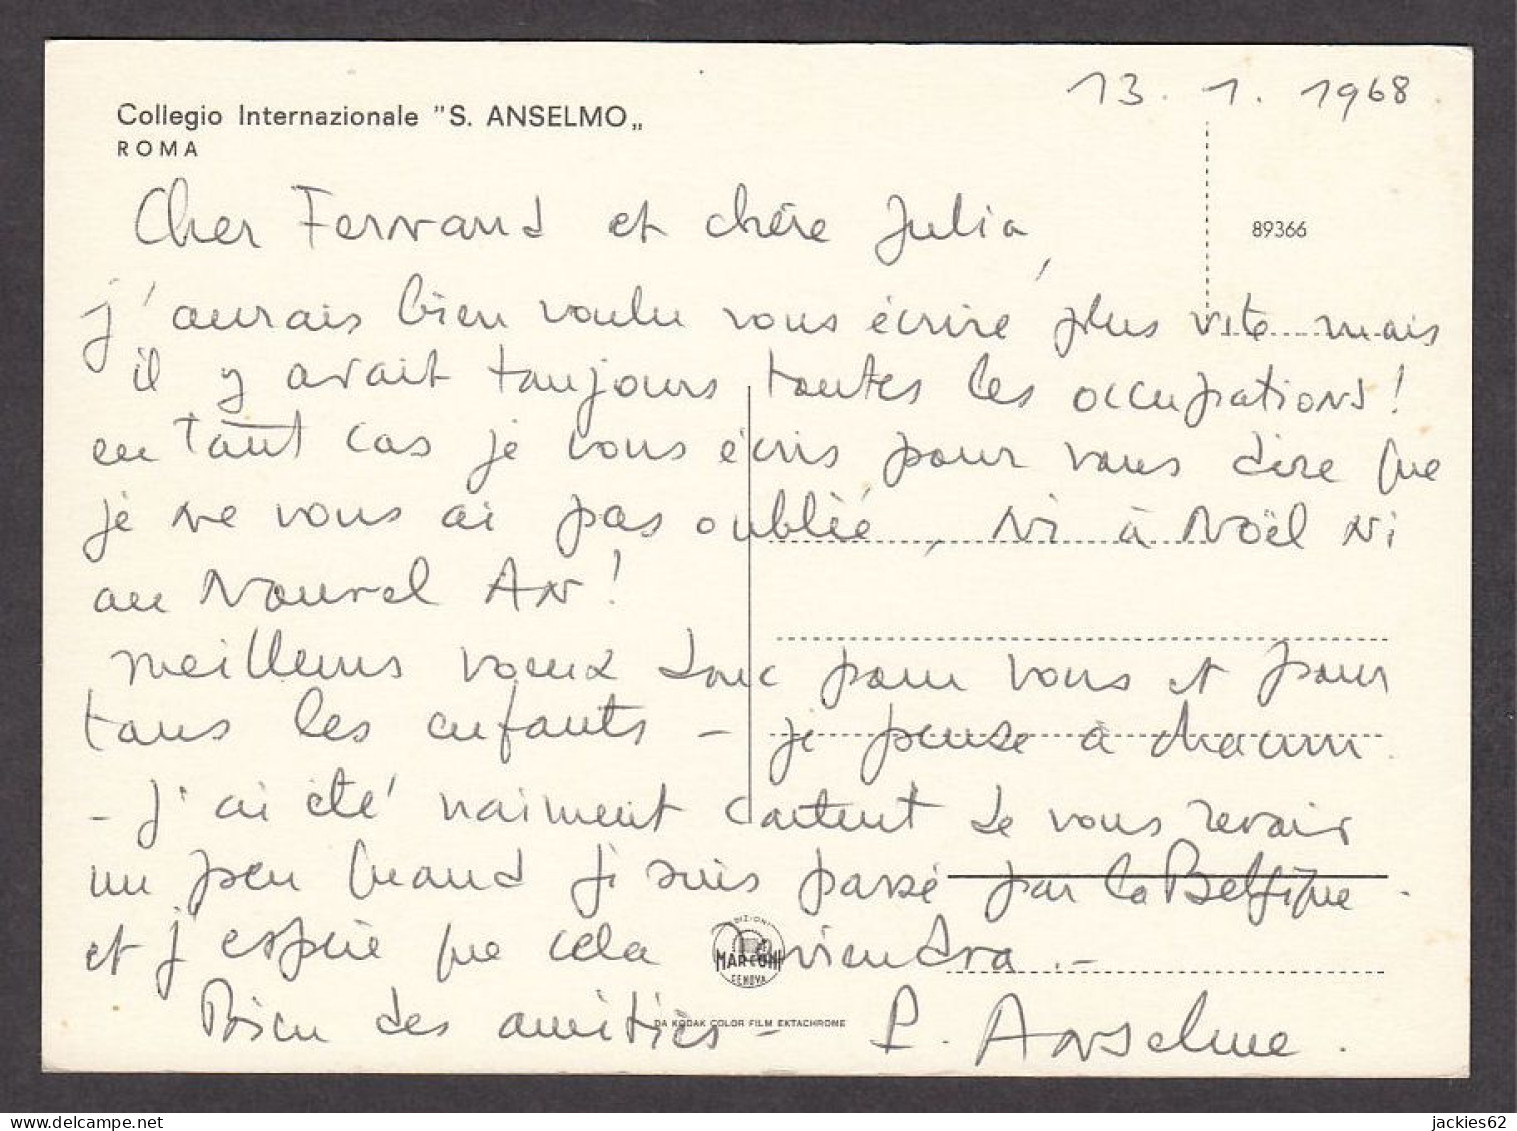 13. 1. 1968
Collegio Internazionale "S. ANSELMO„
ROMA
89366
Cher Fernand et chère Julia,
j'aurais bien voulu vous écrire plus vite mais
il y avait toujours toutes les occupations!
en tout cas je vous écris pour vous dire que
je ne vous ai pas oublié, ni à Noël ni
au Nouvel An!
meilleurs voeux donc pour vous et pour
tous les enfants - je pense à chacun.
- j'ai été vraiment content de vous revoir
un peu quand je suis passé par la Belgique.
et j'espère que cela reviendra.-
Bien des amitiés - P. Anselme.
EDIZIONI
MARCONI
GENOVA
DA KODAK COLOR FILM EKTACHROME
jackies62